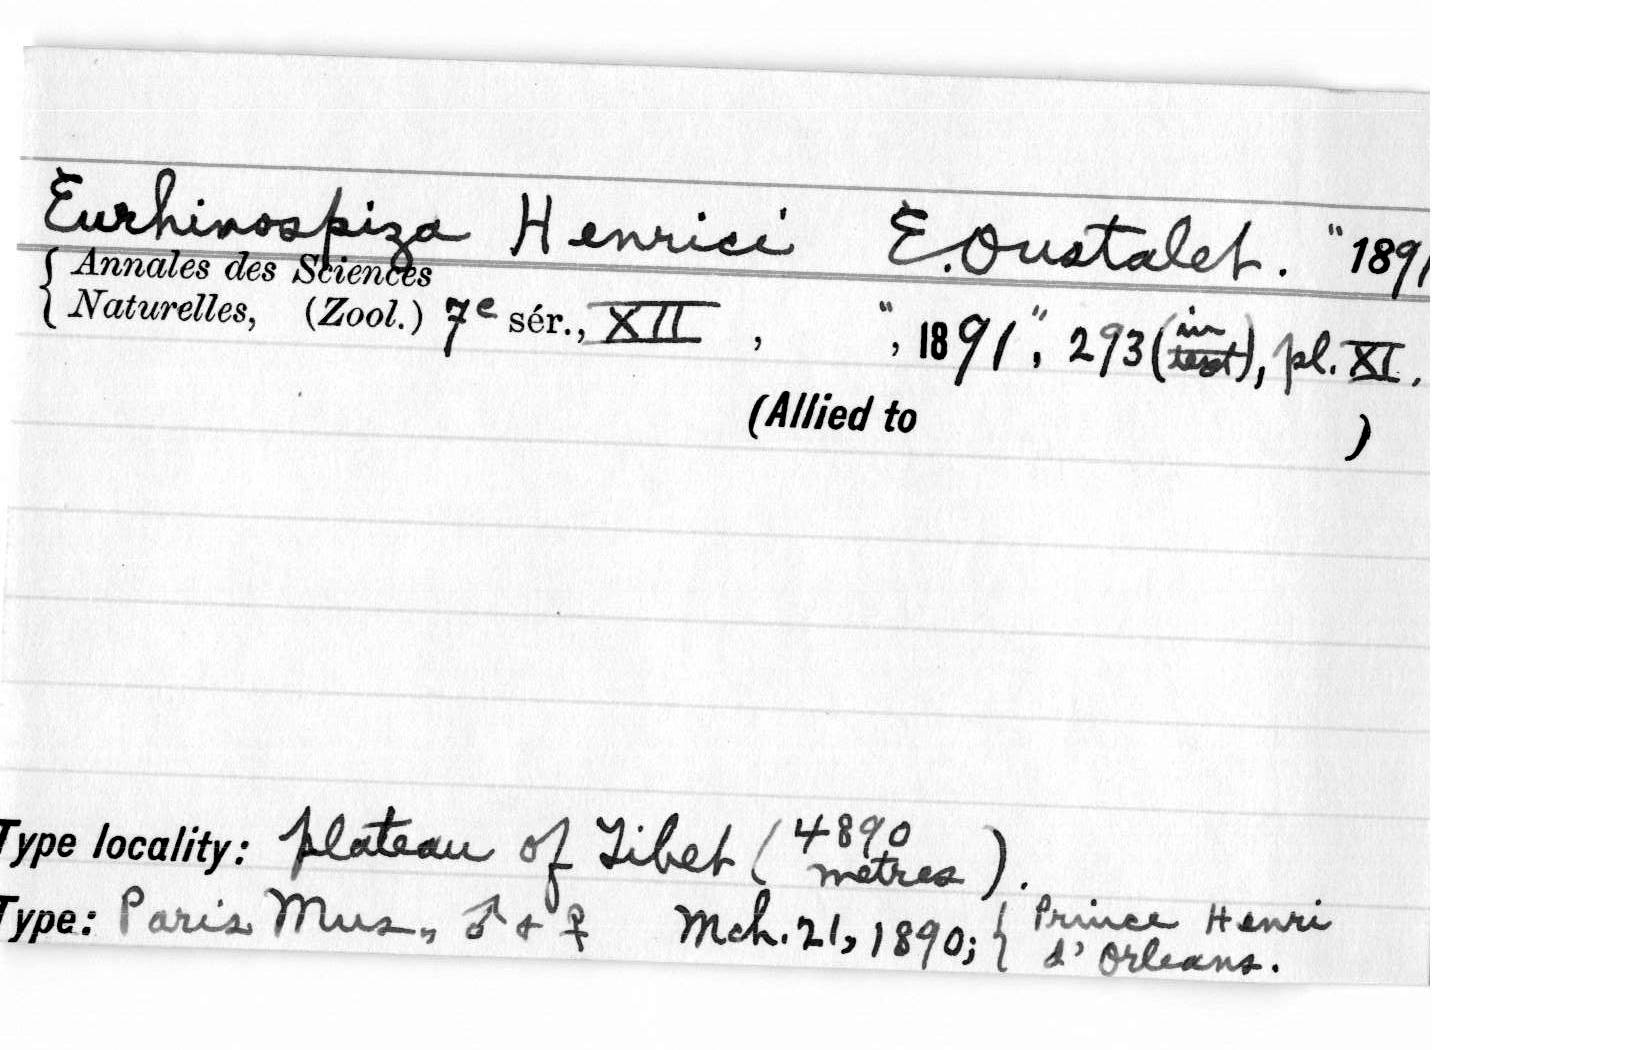 Eurhinospiza Henrici E. Oustalet. "1891
{ Annales des Sciences
Naturelles, (Zool.) 7e sér., XII , ", 1891", 293 (in text), pl. XI.
(Allied to )
Type locality: plateau of Tibet (4890 metres).
Type: Paris Mus., ♂ + ♀ Mch. 21, 1890; { Prince Henri
d'Orleans.